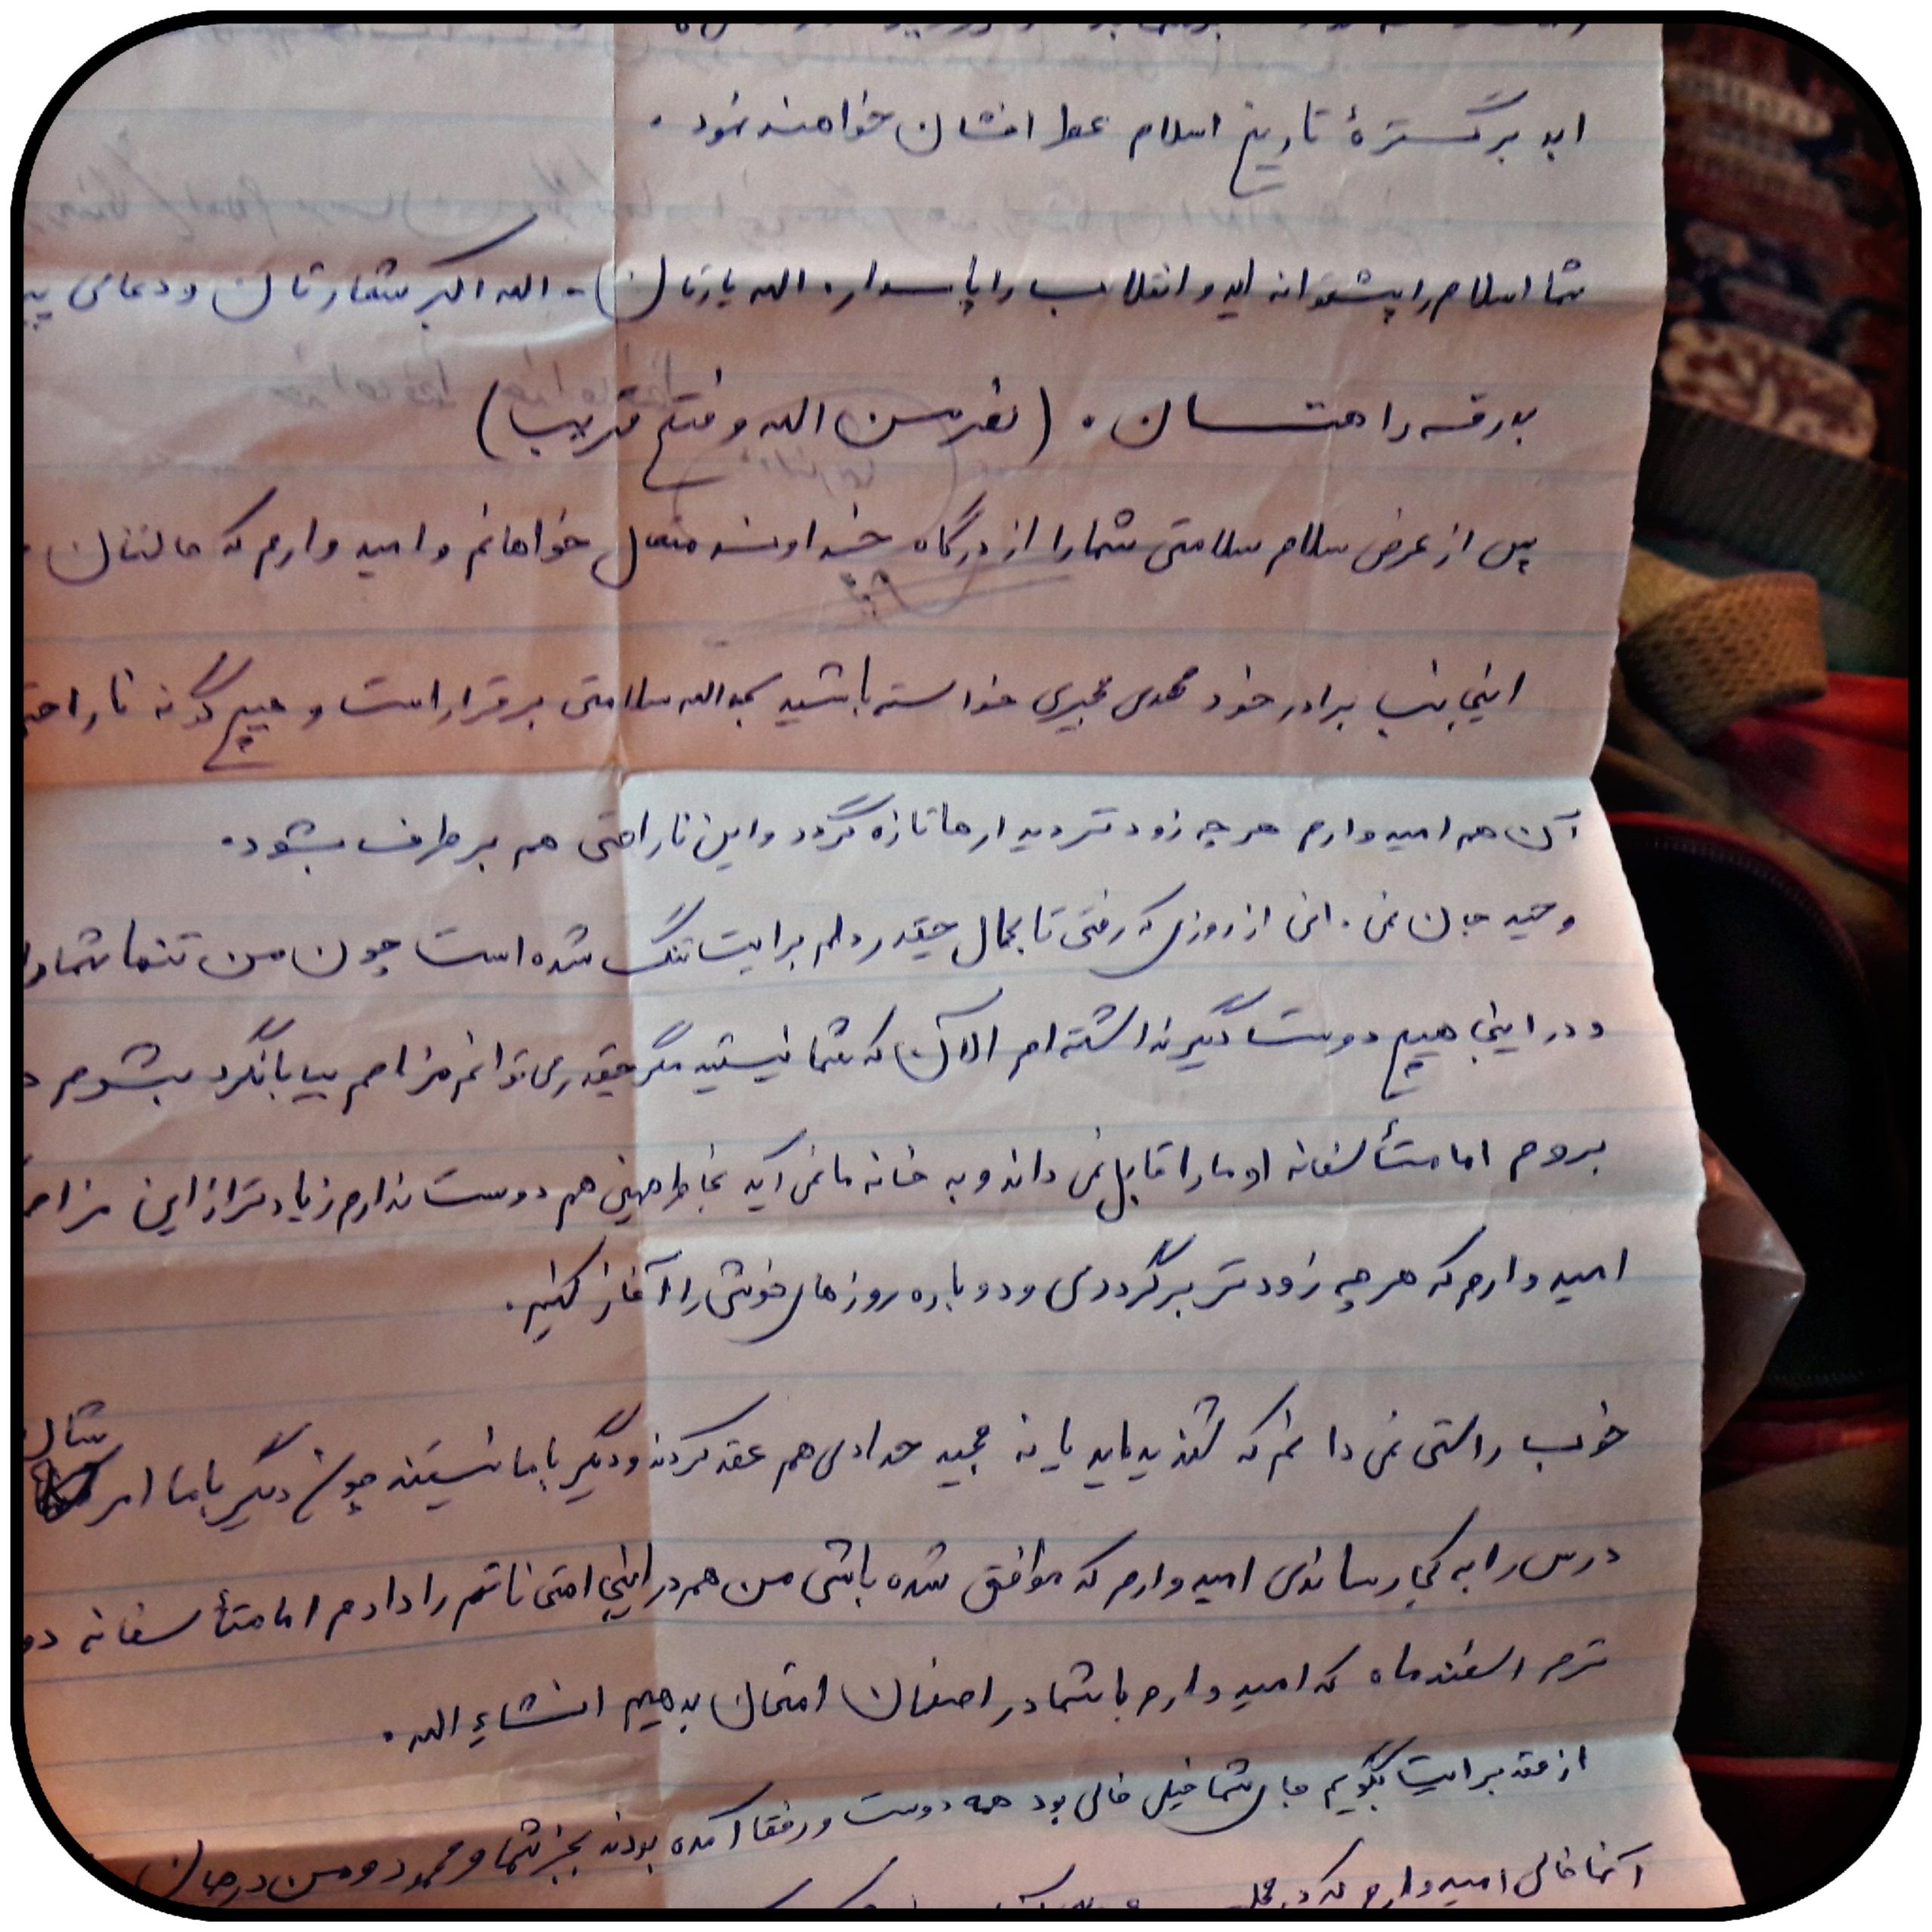 ابد بر گسترهٔ تاریخ اسلام عطر افشان خواهند نمود.
شما اسلام را پشتوانه اید و انقلاب را پاسدار. الله یارتان - الله اکبر شعارتان و دعای
بدرقه راهتان. (نصر من الله و فتح قریب)
پس از عرض سلام سلامتی شما را از درگاه خداوند متعال خواهانم و امید وارم که حالتان
اینجانب برادر خود مهدی مجیری خواسته باشید بحمدالله سلامتی برقرار است و هیچ گونه
آن هم امید وارم هر چه زود تر دیدارها تازه گردد و این ناراحتی هم بر طرف بشود.
وحید جان نمی. دانی از روزی که رفتی تا بحال چقدر دلم برایت تنگ شده است چون من تنها شما
و در اینجا هیچ دوست دیگر نداشته ام الآن که شما نیستید مگر چقدر می توانم مزاحم بشوم
بروم اما متأسفانه او ما را قابل نمی داند و به خانه ما نمی آید بخاطر همین هم دوست ندارم زیاد تر از این
امید وارم که هر چه زود تر برگردی و دوباره روزهای خوشی را آغاز کنیم.
خوب راستی نمی دانم که شنیده اید یا نه مجید حدادی هم عقد کردند و دیگر با ما نیستند چون دیگر با ما
شان
درس را به کجا رساندی امید وارم که موافق شده باشی من هم در اینجا امتحاناتم را دادم اما متأسفانه
ترم اسفند ماه که امید وارم با شما در اصفهان امتحان بدهیم انشاءِ الله.
از عقد برایت بگویم جای شما خیلی خالی بود همه دوست و رفقا آمده بودند بجز شما و محمود و من در
آنها خالی امید وارم که در